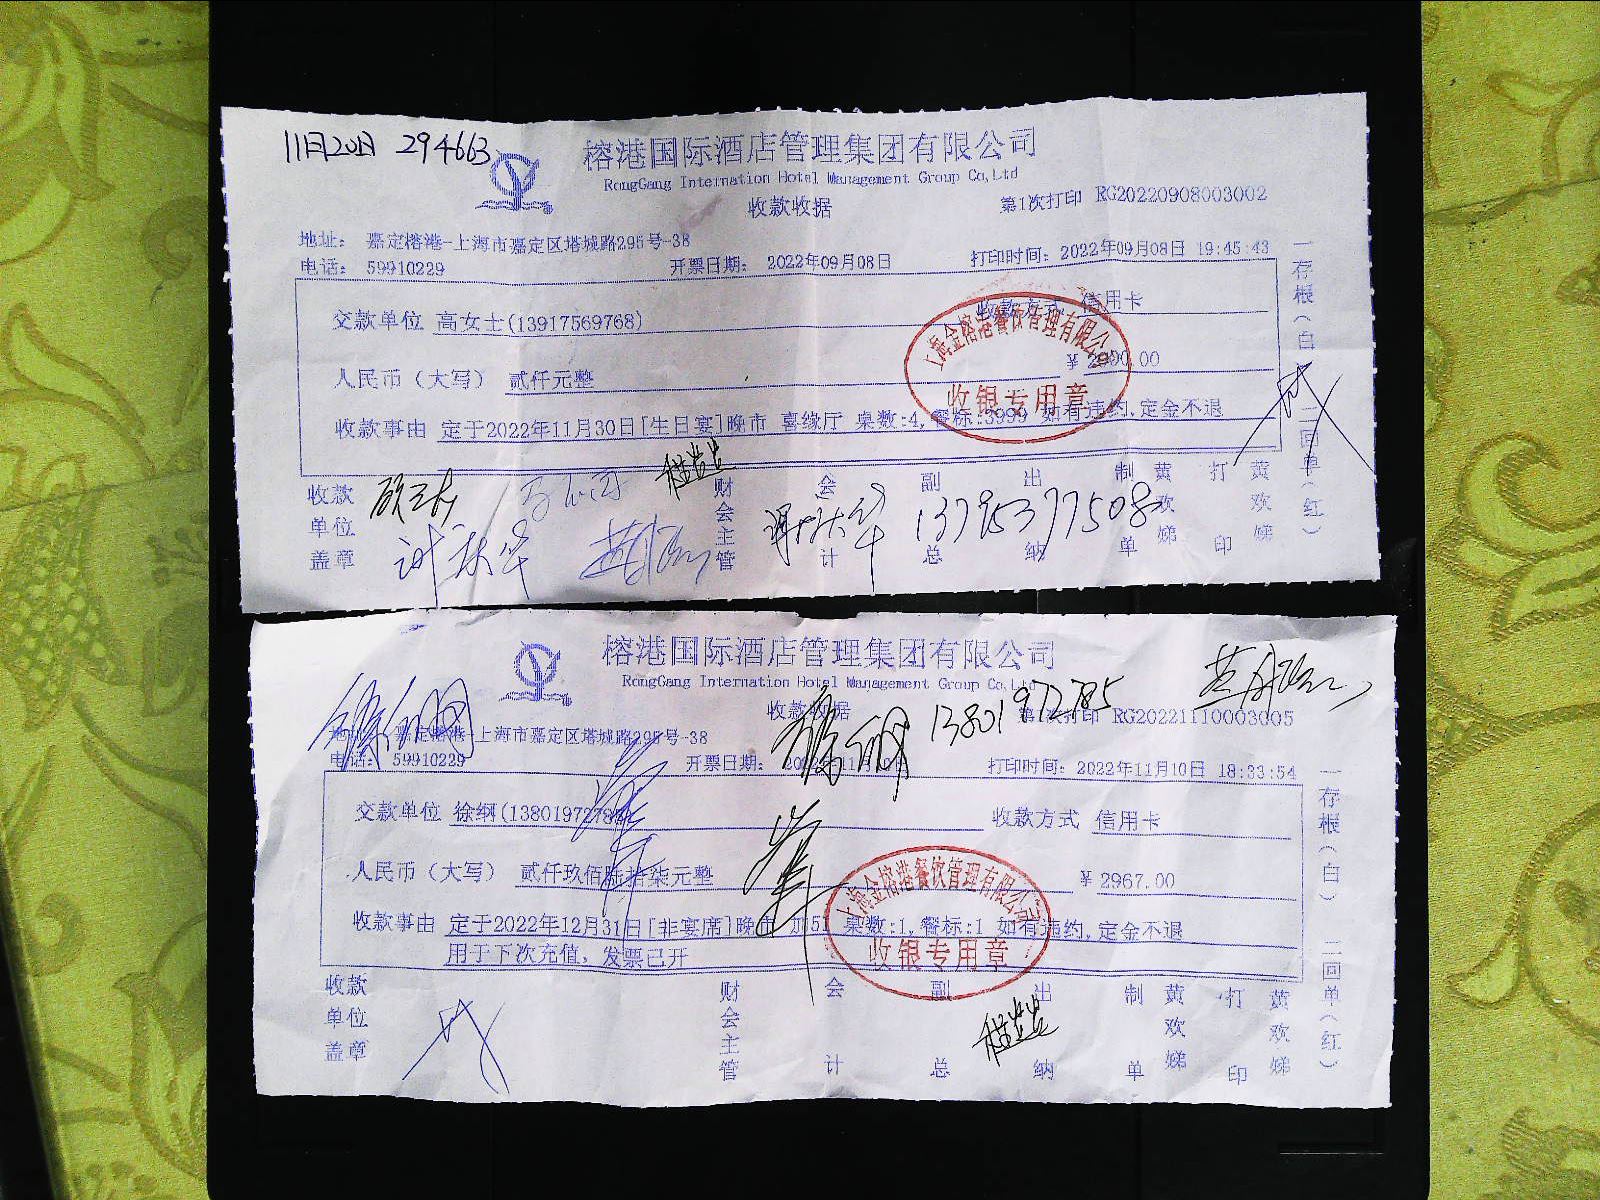 11月20日 294663
榕港国际酒店管理集团有限公司
RongGang Internation Hotel Management Group Co,Ltd
收款收据
第1次打印 RG20220908003002
地址： 嘉定榕港-上海市嘉定区塔城路295号-38
电话： 59910229
开票日期： 2022年09月08日
打印时间： 2022年09月08日 19:45:43
交款单位 高女士(13917569768)
收款方式 信用卡
人民币（大写） 贰仟元整
￥ 2000.00
收款事由 定于2022年11月30日[生日宴]晚市 喜缘厅 桌数:4,餐标:3999 如有违约,定金不退
上海金榕港餐饮管理有限公司
收银专用章
一存根（白） 二回单（红）
收款单位盖章
财会主管
会计
副总
出纳
制单 黄欢娣
打印 黄欢娣
13795377508
榕港国际酒店管理集团有限公司
RongGang Internation Hotel Management Group Co,Ltd
收款收据
第1次打印 RG20221110003005
徐纲 13801972785
地址： 嘉定榕港-上海市嘉定区塔城路295号-38
电话： 59910229
开票日期： 2022年11月10日
打印时间： 2022年11月10日 18:33:54
交款单位 徐纲(13801972785)
收款方式 信用卡
人民币（大写） 贰仟玖佰陆拾柒元整
￥ 2967.00
收款事由 定于2022年12月31日[非宴席]晚市 加51 桌数:1,餐标:1 如有违约,定金不退
用于下次充值，发票已开
上海金榕港餐饮管理有限公司
收银专用章
一存根（白） 二回单（红）
收款单位盖章
财会主管
会计
副总
出纳
制单 黄欢娣
打印 黄欢娣